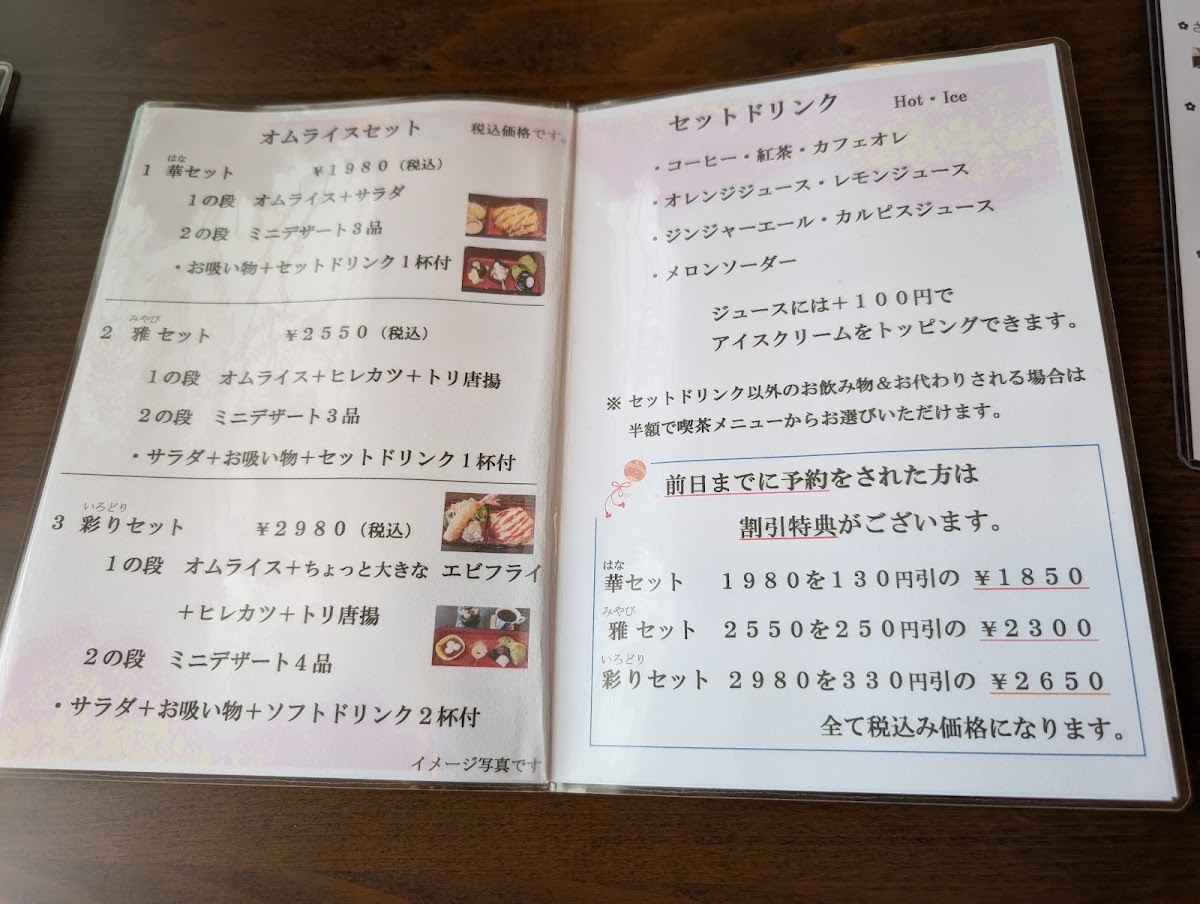 オムライスセット　税込価格です。
はな
1 華セット　￥1980（税込）
1の段　オムライス＋サラダ
2の段　ミニデザート3品
・お吸い物＋セットドリンク1杯付
みやび
2 雅セット　￥2550（税込）
1の段　オムライス＋ヒレカツ＋トリ唐揚
2の段　ミニデザート3品
・サラダ＋お吸い物＋セットドリンク1杯付
いろどり
3 彩りセット　￥2980（税込）
1の段　オムライス＋ちょっと大きな エビフライ
＋ヒレカツ＋トリ唐揚
2の段　ミニデザート4品
・サラダ＋お吸い物＋ソフトドリンク2杯付
イメージ写真です
セットドリンク　Hot・Ice
・コーヒー・紅茶・カフェオレ
・オレンジジュース・レモンジュース
・ジンジャーエール・カルピスジュース
・メロンソーダー
ジュースには＋100円で
アイスクリームをトッピングできます。
※ セットドリンク以外のお飲み物＆お代わりされる場合は
半額で喫茶メニューからお選びいただけます。
前日までに予約をされた方は
割引特典がございます。
はな
華セット　1980を130円引の ￥1850
みやび
雅セット　2550を250円引の ￥2300
いろどり
彩りセット　2980を330円引の ￥2650
全て税込み価格になります。